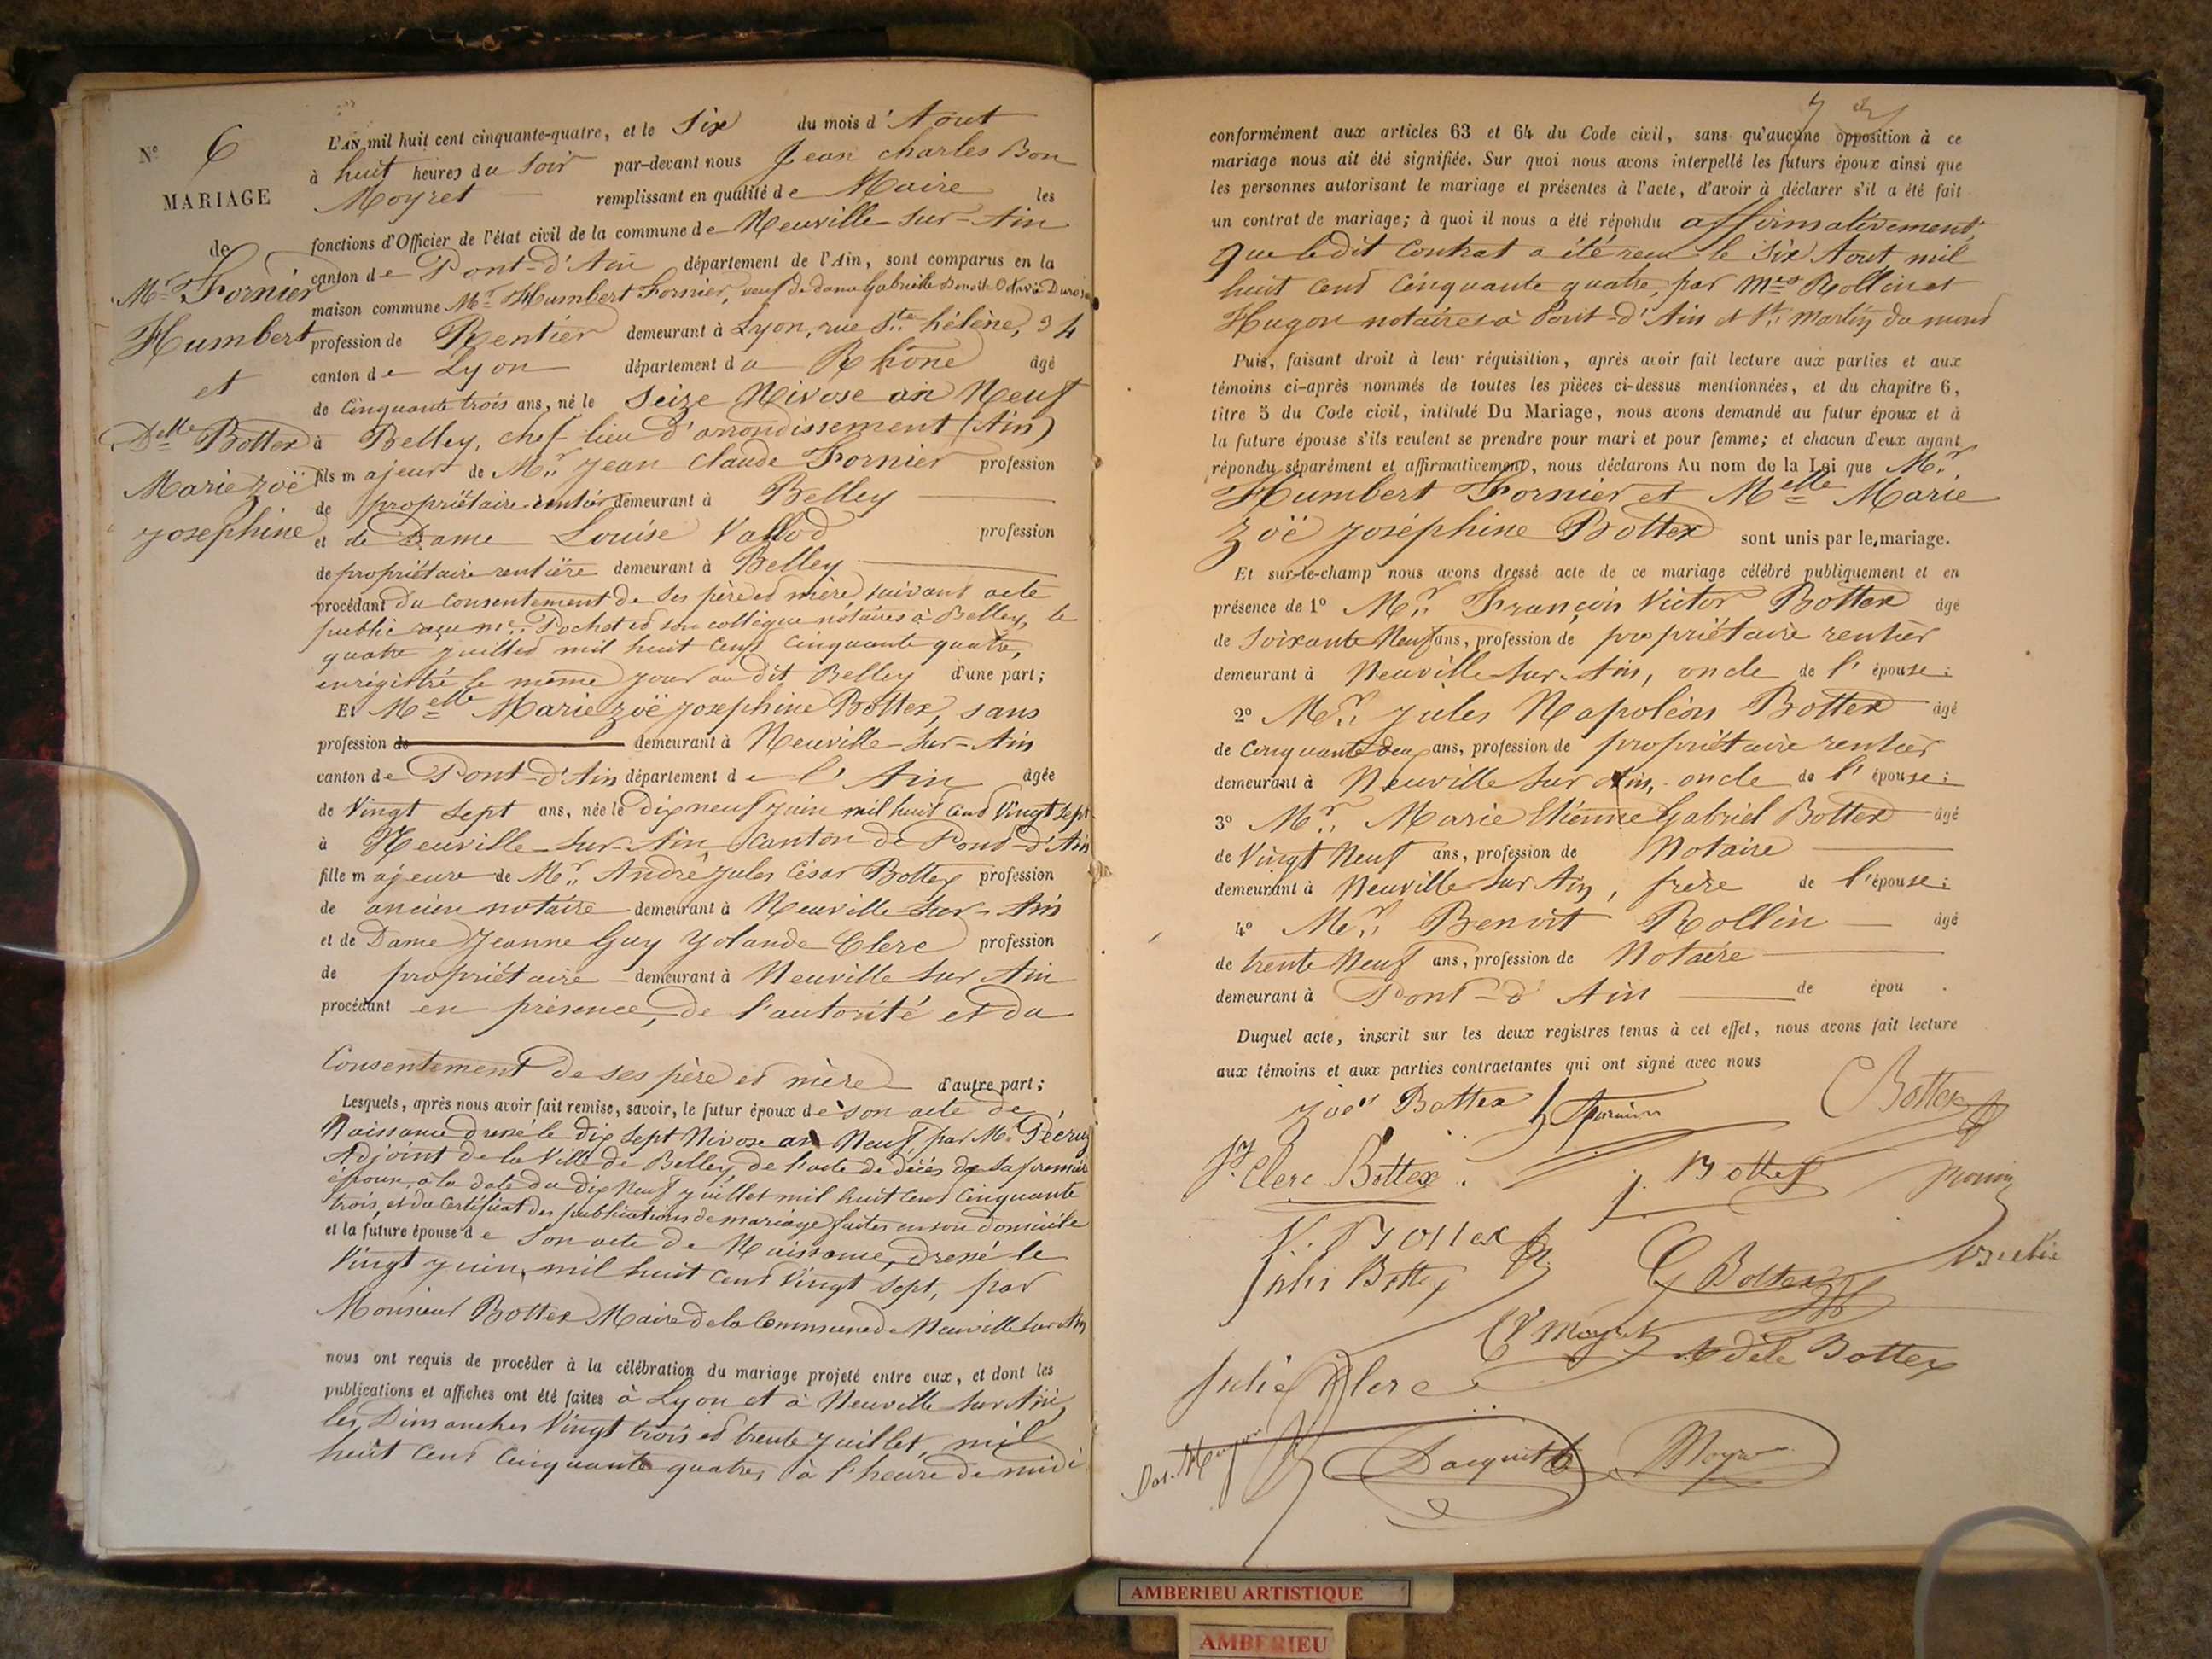 N° 6
MARIAGE
de
Mr Fornier
Humbert
et
Delle Bottex
Marie Zoë
Josephine
L'AN mil huit cent cinquante-quatre, et le Six du mois d'Aout
à huit heures du Soir par-devant nous Jean Charles Bon
Moyret remplissant en qualité de Maire les
fonctions d'Officier de l'état civil de la commune de Neuville-sur-Ain
canton de Pont-d'Ain département de l'Ain, sont comparus en la
maison commune Mr Humbert Fornier, veuf de dame Gabrielle Benoite
profession de Rentier demeurant à Lyon, rue Ste hélène, 34
canton de Lyon département du Rhône âgé
de Cinquante trois ans, né le Seize Nivose an Neuf
à Belley, chef-lieu d'arrondissement (Ain)
fils majeur de Mr Jean Claude Fornier profession
de propriétaire rentier demeurant à Belley
et de Dame Louise Vallod profession
de propriétaire rentière demeurant à Belley
procédant du Consentement de ses père et mère suivant acte
public reçu me Pochet et son collègue notaires à Belley, le
quatre juillet mil huit cent cinquante quatre,
enrégistré le même jour au dit Belley d'une part;
Et Melle Marie Zoë Josephine Bottex, sans
profession de demeurant à Neuville-sur-Ain
canton de Pont-d'Ain département de l'Ain âgée
de Vingt sept ans, née le dix neuf juin mil huit cent vingt sept
à Neuville-sur-Ain canton de Pont-d'Ain
fille majeure de Mr André Jules César Bottex profession
de ancien notaire demeurant à Neuville-sur-Ain
et de Dame Jeanne Guy Yolande Clerc profession
de propriétaire demeurant à Neuville sur Ain
procédant en présence, de l'autorité et du
Consentement de ses père et mère d'autre part;
Lesquels, après nous avoir fait remise, savoir, le futur époux de son acte de
Naissance dressé le dix sept Nivose an Neuf, par Mr
Adjoint de la Ville de Belley, de l'acte de décès de sa première
épouse, à la date du dix Neuf juillet mil huit cent cinquante
trois, et du certificat des publications de mariage faites en son domicile
et la future épouse de Son acte de Naissance, dressé le
Vingt juin, mil huit cent vingt sept, par
Monsieur Bottex Maire de la Commune de Neuville sur Ain
nous ont requis de procéder à la célébration du mariage projeté entre eux, et dont les
publications et affiches ont été faites à Lyon et à Neuville sur Ain,
les Dimanches Vingt trois et trente juillet, mil
huit cent cinquante quatre, à l'heure de midi
conformément aux articles 63 et 64 du Code civil, sans qu'aucune opposition à ce
mariage nous ait été signifiée. Sur quoi nous avons interpellé les futurs époux ainsi que
les personnes autorisant le mariage et présentes à l'acte, d'avoir à déclarer s'il a été fait
un contrat de mariage; à quoi il nous a été répondu affirmativement,
que ledit Contrat a été recu le Six Aout mil
huit cent cinquante quatre, par Mes Rollin et
Hugon notaires à Pont-d'Ain et St martin du mont
Puis, faisant droit à leur réquisition, après avoir fait lecture aux parties et aux
témoins ci-après nommés de toutes les pièces ci-dessus mentionnées, et du chapitre 6,
titre 5 du Code civil, intitulé Du Mariage, nous avons demandé au futur époux et à
la future épouse s'ils veulent se prendre pour mari et pour femme; et chacun d'eux ayant
répondu séparément et affirmativement, nous déclarons Au nom de la Loi que Mr
Humbert Fornier et Melle Marie
Zoë Joséphine Bottex sont unis par le mariage.
Et sur-le-champ nous avons dressé acte de ce mariage célébré publiquement et en
présence de 1° Mr François Victor Bottex âgé
de Soixante Neuf ans, profession de propriétaire rentier
demeurant à Neuville-sur-Ain, oncle de l'épouse;
2° Mr Jules Napoléon Bottex âgé
de Cinquante deux ans, profession de propriétaire rentier
demeurant à Neuville sur Ain, oncle de l'épouse;
3° Mr Marie Etienne Gabriel Bottex âgé
de Vingt Neuf ans, profession de Notaire
demeurant à Neuville sur Ain, frère de l'épouse;
4° Mr Benoit Rollin âgé
de trente Neuf ans, profession de Notaire
demeurant à Pont-d'Ain de épou .
Duquel acte, inscrit sur les deux registres tenus à cet effet, nous avons fait lecture
aux témoins et aux parties contractantes qui ont signé avec nous
Zoé Bottex h fornier Bottex
Clerc Bottex. j. Bottex
V. Bottex
Jules Bottex G Bottex
Moyret Adèle Bottex
Julie Clerc
Moyret
AMBERIEU ARTISTIQUE
AMBERIEU